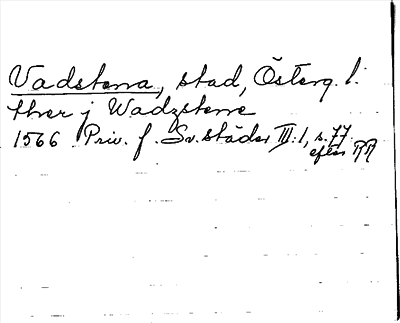 Vadstena, stad, Österg. l.
ther j Wadzstene
1566 Priv. f. Sv. städer III:1, s. 77
efter RR